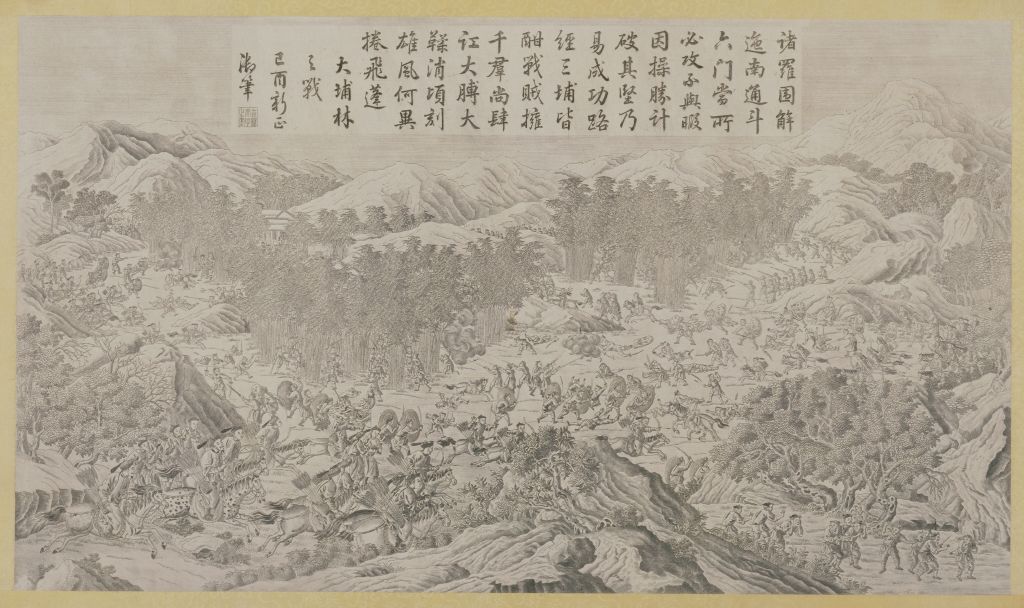 諸羅圍解
迤南通斗
六門當所
必攻不與暇
因操勝計
破其堅乃
易成功路
經三埔皆
酣戰賊擁
千羣尚肆
訌大膊大
消頃刻
雄風何異
捲飛蓬
大埔林
之戰
己酉新正
御筆